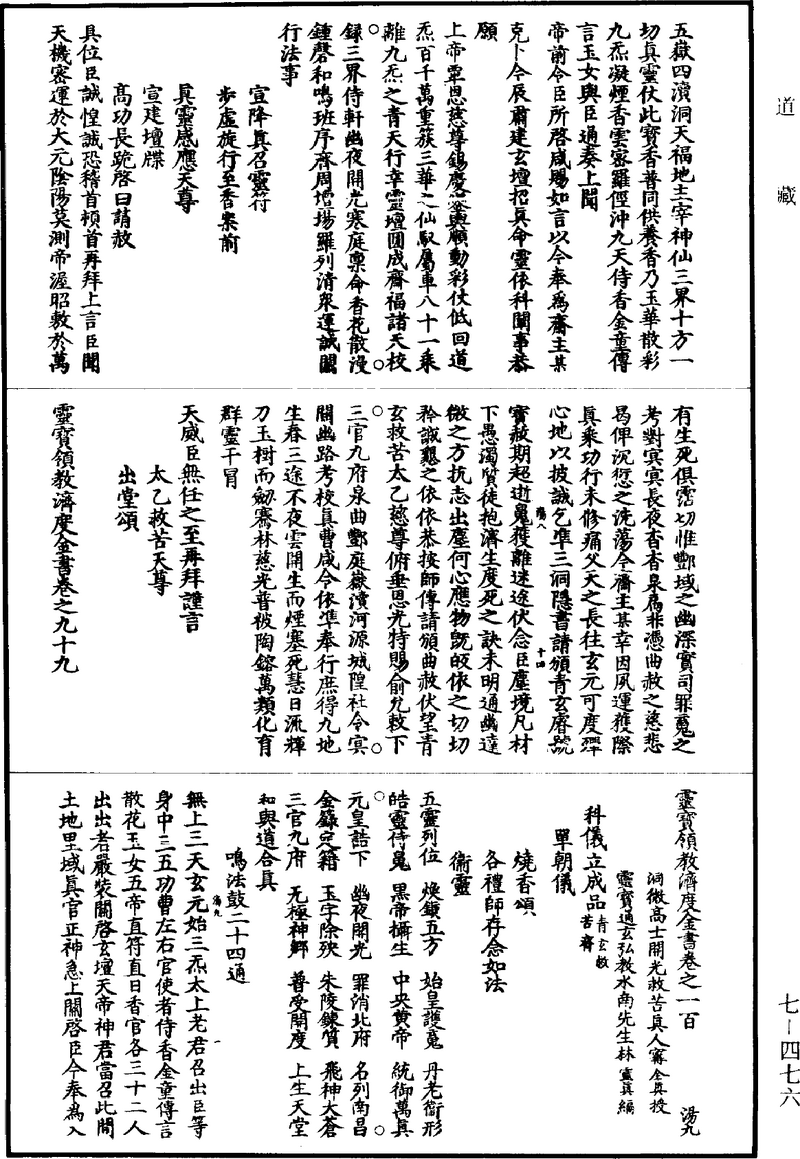 道藏
五嶽四瀆洞天福地主宰神仙三界十方一
切真靈仗此寶香普同供養香乃玉華散彩
九炁凝煙香雲密羅徑沖九天侍香金童傳
言玉女與臣通奏上聞
帝前令臣所啓咸賜如言以今奉為齋主某
克卜今辰肅建玄壇招真命靈依科闡事恭
願
上帝覃恩慈尊錫慶鑾輿順動彩仗低回道
炁百千萬重蔟三華之仙馭屬車八十一乘
離九炁之青天行幸靈壇圓成齋福諸天校
録三界侍軒幽夜開光寒庭稟命香花散漫
鍾磬和鳴班序齊周壇場羅列清衆運誠闡
行法事
宣降真召靈符
步虛旋行至香案前
真靈感應天尊
宣建壇牒
高功長跪啓白請赦
具位臣誠惶誠恐稽首頓首再拜上言臣聞
天機密運於大元陰陽莫測帝渥昭敷於萬
有生死俱霑切惟酆域之幽深實司罪冤之
考對冥冥長夜杳杳泉扃非憑曲赦之慈悲
曷俾沉愆之洗蕩今齋主某幸因風運獲際
真乘功行未修痛父天之長往玄元可度罄
心地以披誠乞準三洞隱書請頒青玄睿號
寶赦期超逝魂獲離迷途伏念臣塵境凡材
湯八
十四
下愚濁質徒抱濟生度死之訣未明通幽達
微之方抗志出塵何心應物旣皈依之切切
矜誠懇之依依恭按師傳請頒曲赦伏望青
玄救苦太乙慈尊俯垂恩光特賜俞允敕下
三官九府泉曲酆庭嶽瀆河源城隍社令冥
關幽路考校真曹咸令依準奉行庶得九地
生春三途不夜雲開生而煙塞死慧日流輝
刀玉樹而劒騫林慈光普被陶鎔萬類化育
群靈干冒
天威臣無任之至再拜謹言
太乙救苦天尊
出堂頌
靈寶領教濟度金書卷之九十九
靈寶領教濟度金書卷之一百
湯九
洞微高士開光救苦真人甯全真授
靈寶通玄弘教水南先生林靈真編
科儀立成品 青玄救苦齋
單朝儀
燒香頌
各禮師存念如法
衛靈
五靈列位 煥鎮五方 始皇護魂 丹老衛形
皓靈侍魄 黑帝攝生 中央黄帝 統御萬真
元皇誥下 幽夜開光 罪消北府 名列南昌
金籙定籍 玉字除殃 朱陵鍊質 飛神大蒼
三官九府 无極神鄉 普受開度 上生天堂
和與道合真
鳴法鼓二十四通
無上三天玄元始三炁太上老君召出臣等
湯九
一
身中三五功曹左右官使者侍香金童傳言
散花玉女五帝直符直日香官各三十二人
出出者嚴裝關啓玄壇天帝神君當召此間
土地里域真官正神急上關啓臣今奉為入
七－四七六